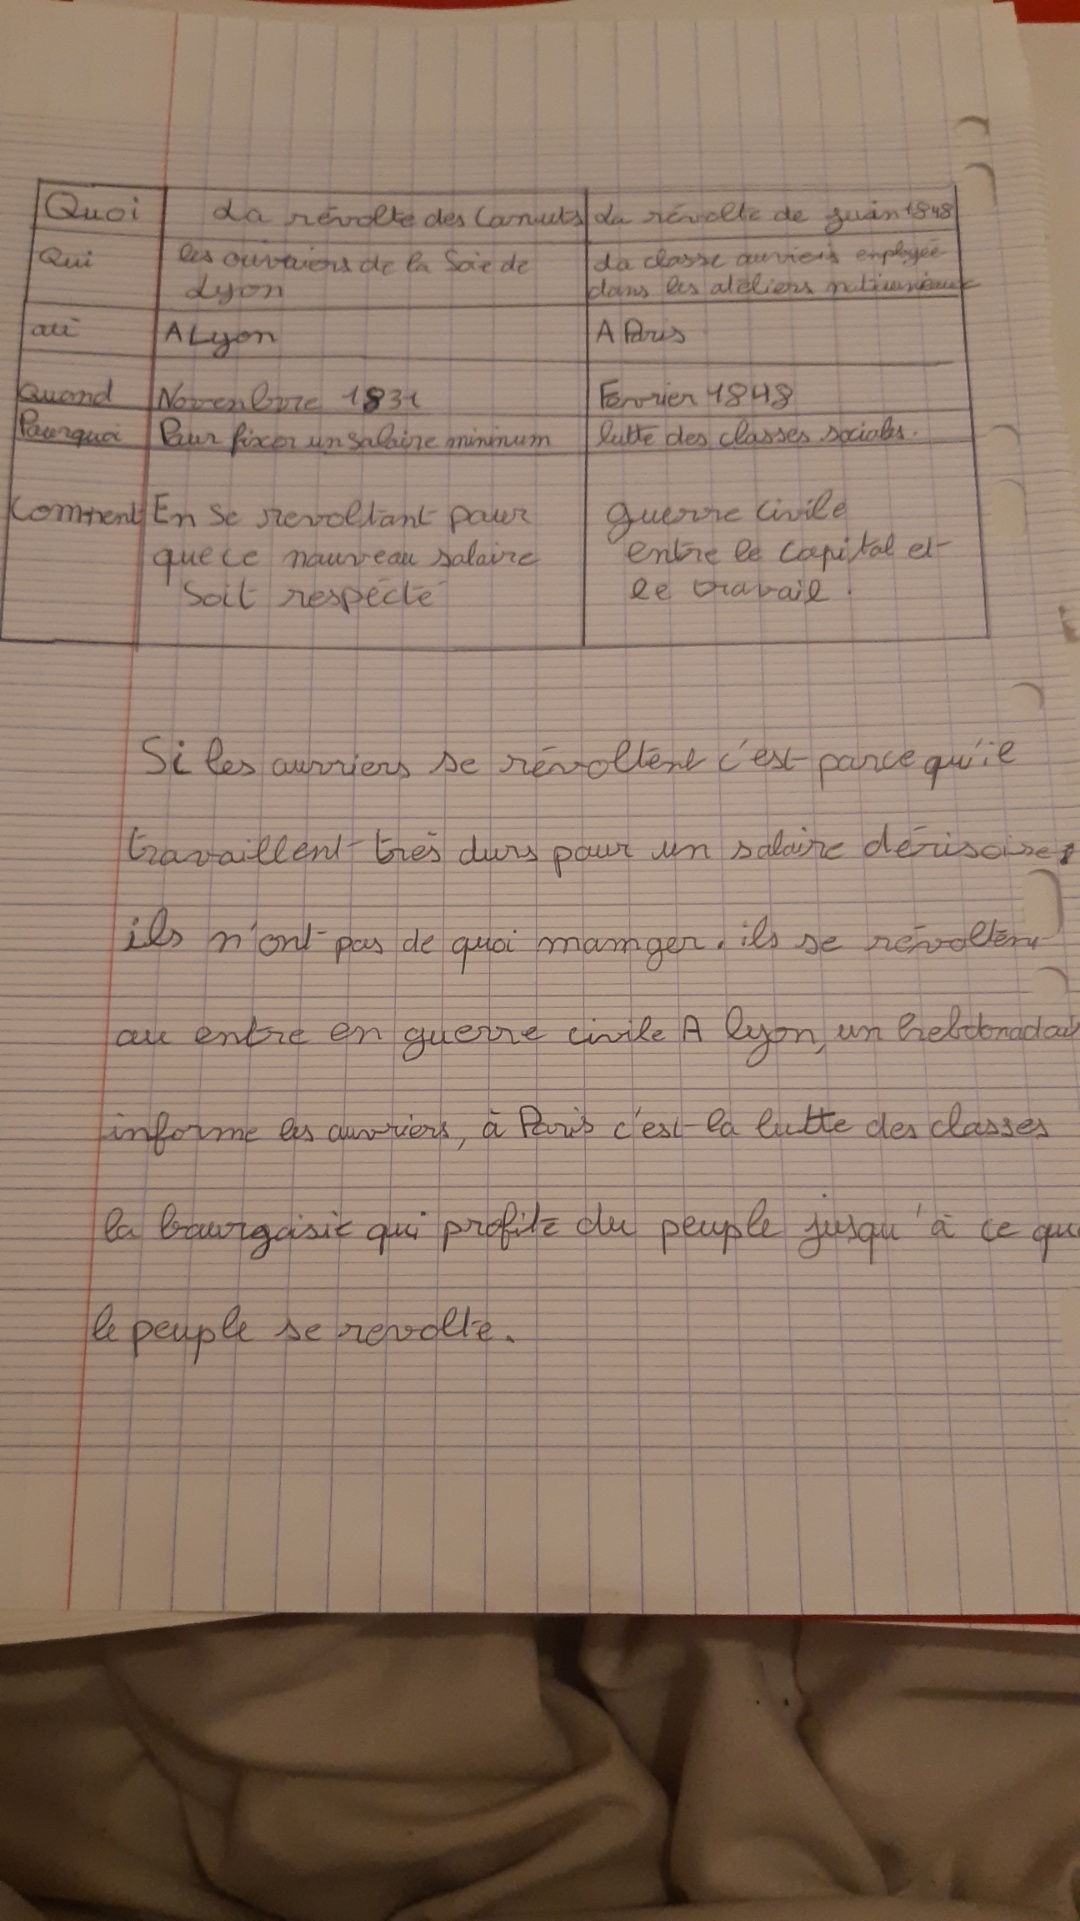 Quoi La révolte des Canuts La révolte de juin 1848
Qui les ouvriers de la Soie de La classe ouvriers employée
Lyon dans les ateliers nationaux
où A Lyon A Paris
Quand Novembre 1831 Fevrier 1848
Pourquoi Pour fixer un salaire mininum lutte des classes sociales.
Comment En se revoltant pour guerre civile
que ce nouveau salaire entre le capital et
soit respecté le travail.
Si les ouvriers se révoltent c'est parce qu'il
travaillent très durs pour un salaire dérisoire,
ils n'ont pas de quoi mamger. ils se révoltent
ou entre en guerre civile A lyon, un hebdonadai
informe les ouvriers, à Paris c'est la lutte des classes
la bourgoisie qui profite du peuple jusqu'à ce que
le peuple se revolte.